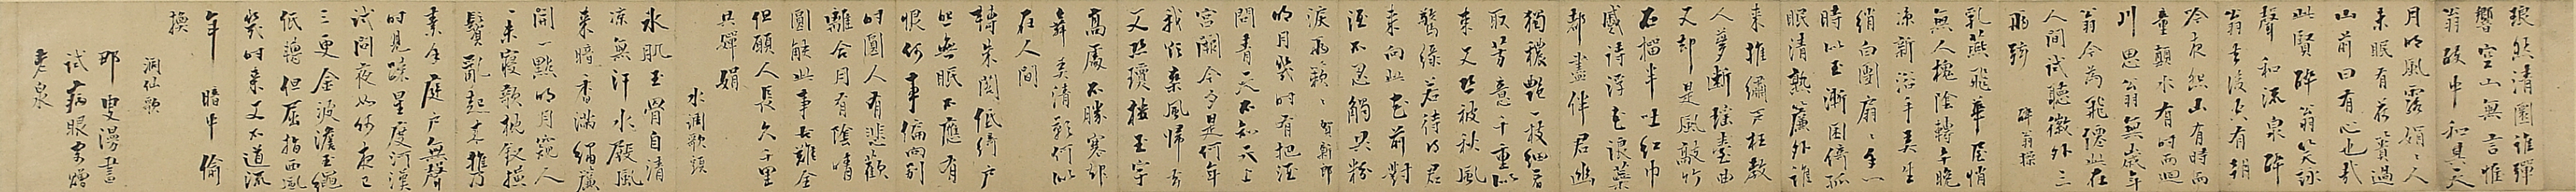 琅然清圜誰彈
響空山無言惟
翁醉中和其天
月明風露娟娟人
未眠有荷蕢過
山前曰有心也哉
此賢醉翁笑詠
聲和流泉醉
翁去後空有朝
吟夜怨山有時而
童顛水有時而迴
川思翁無歲年
翁今為飛僊此在
人間試聽徽外三
兩絃 醉翁操
乳燕飛華屋悄
無人槐陰轉午晚
涼新浴手弄生
綃白團扇扇手一
時似玉漸困倚孤
眠清熟簾外誰
來推繡戶枉教
人夢斷瑤臺曲
又却是風敲竹
石榴半吐紅巾
蹙待浮花浪蕊
都盡伴君幽
獨穠艷一枝細看
取芳意千重似
束又恐被秋風
驚綠若待得君
來向此花前對
酒不忍觸共粉
淚兩簌簌 賀新郎
明月幾時有把酒
問青天不知天上
宮闕今夕是何年
我欲乘風歸去
又恐瓊樓玉宇
高處不勝寒起
舞弄清影何似
在人間
轉朱閣低綺戶
照無眠不應有
恨何事偏向別
時圓人有悲歡
離合月有陰晴
圓缺此事古難全
但願人長久千里
共嬋娟
水調歌頭
冰肌玉骨自清
涼無汗水殿風
來暗香滿繡簾
開一點明月窺人
人未寢欹枕釵橫
鬢亂起來攜
素手庭戶無聲
時見疏星度河漢
試問夜如何夜已
三更金波澹玉繩
低轉但屈指西風
幾時來又不道流
年暗中偷
換
洞仙歌
叟漫書
試病眼
老泉